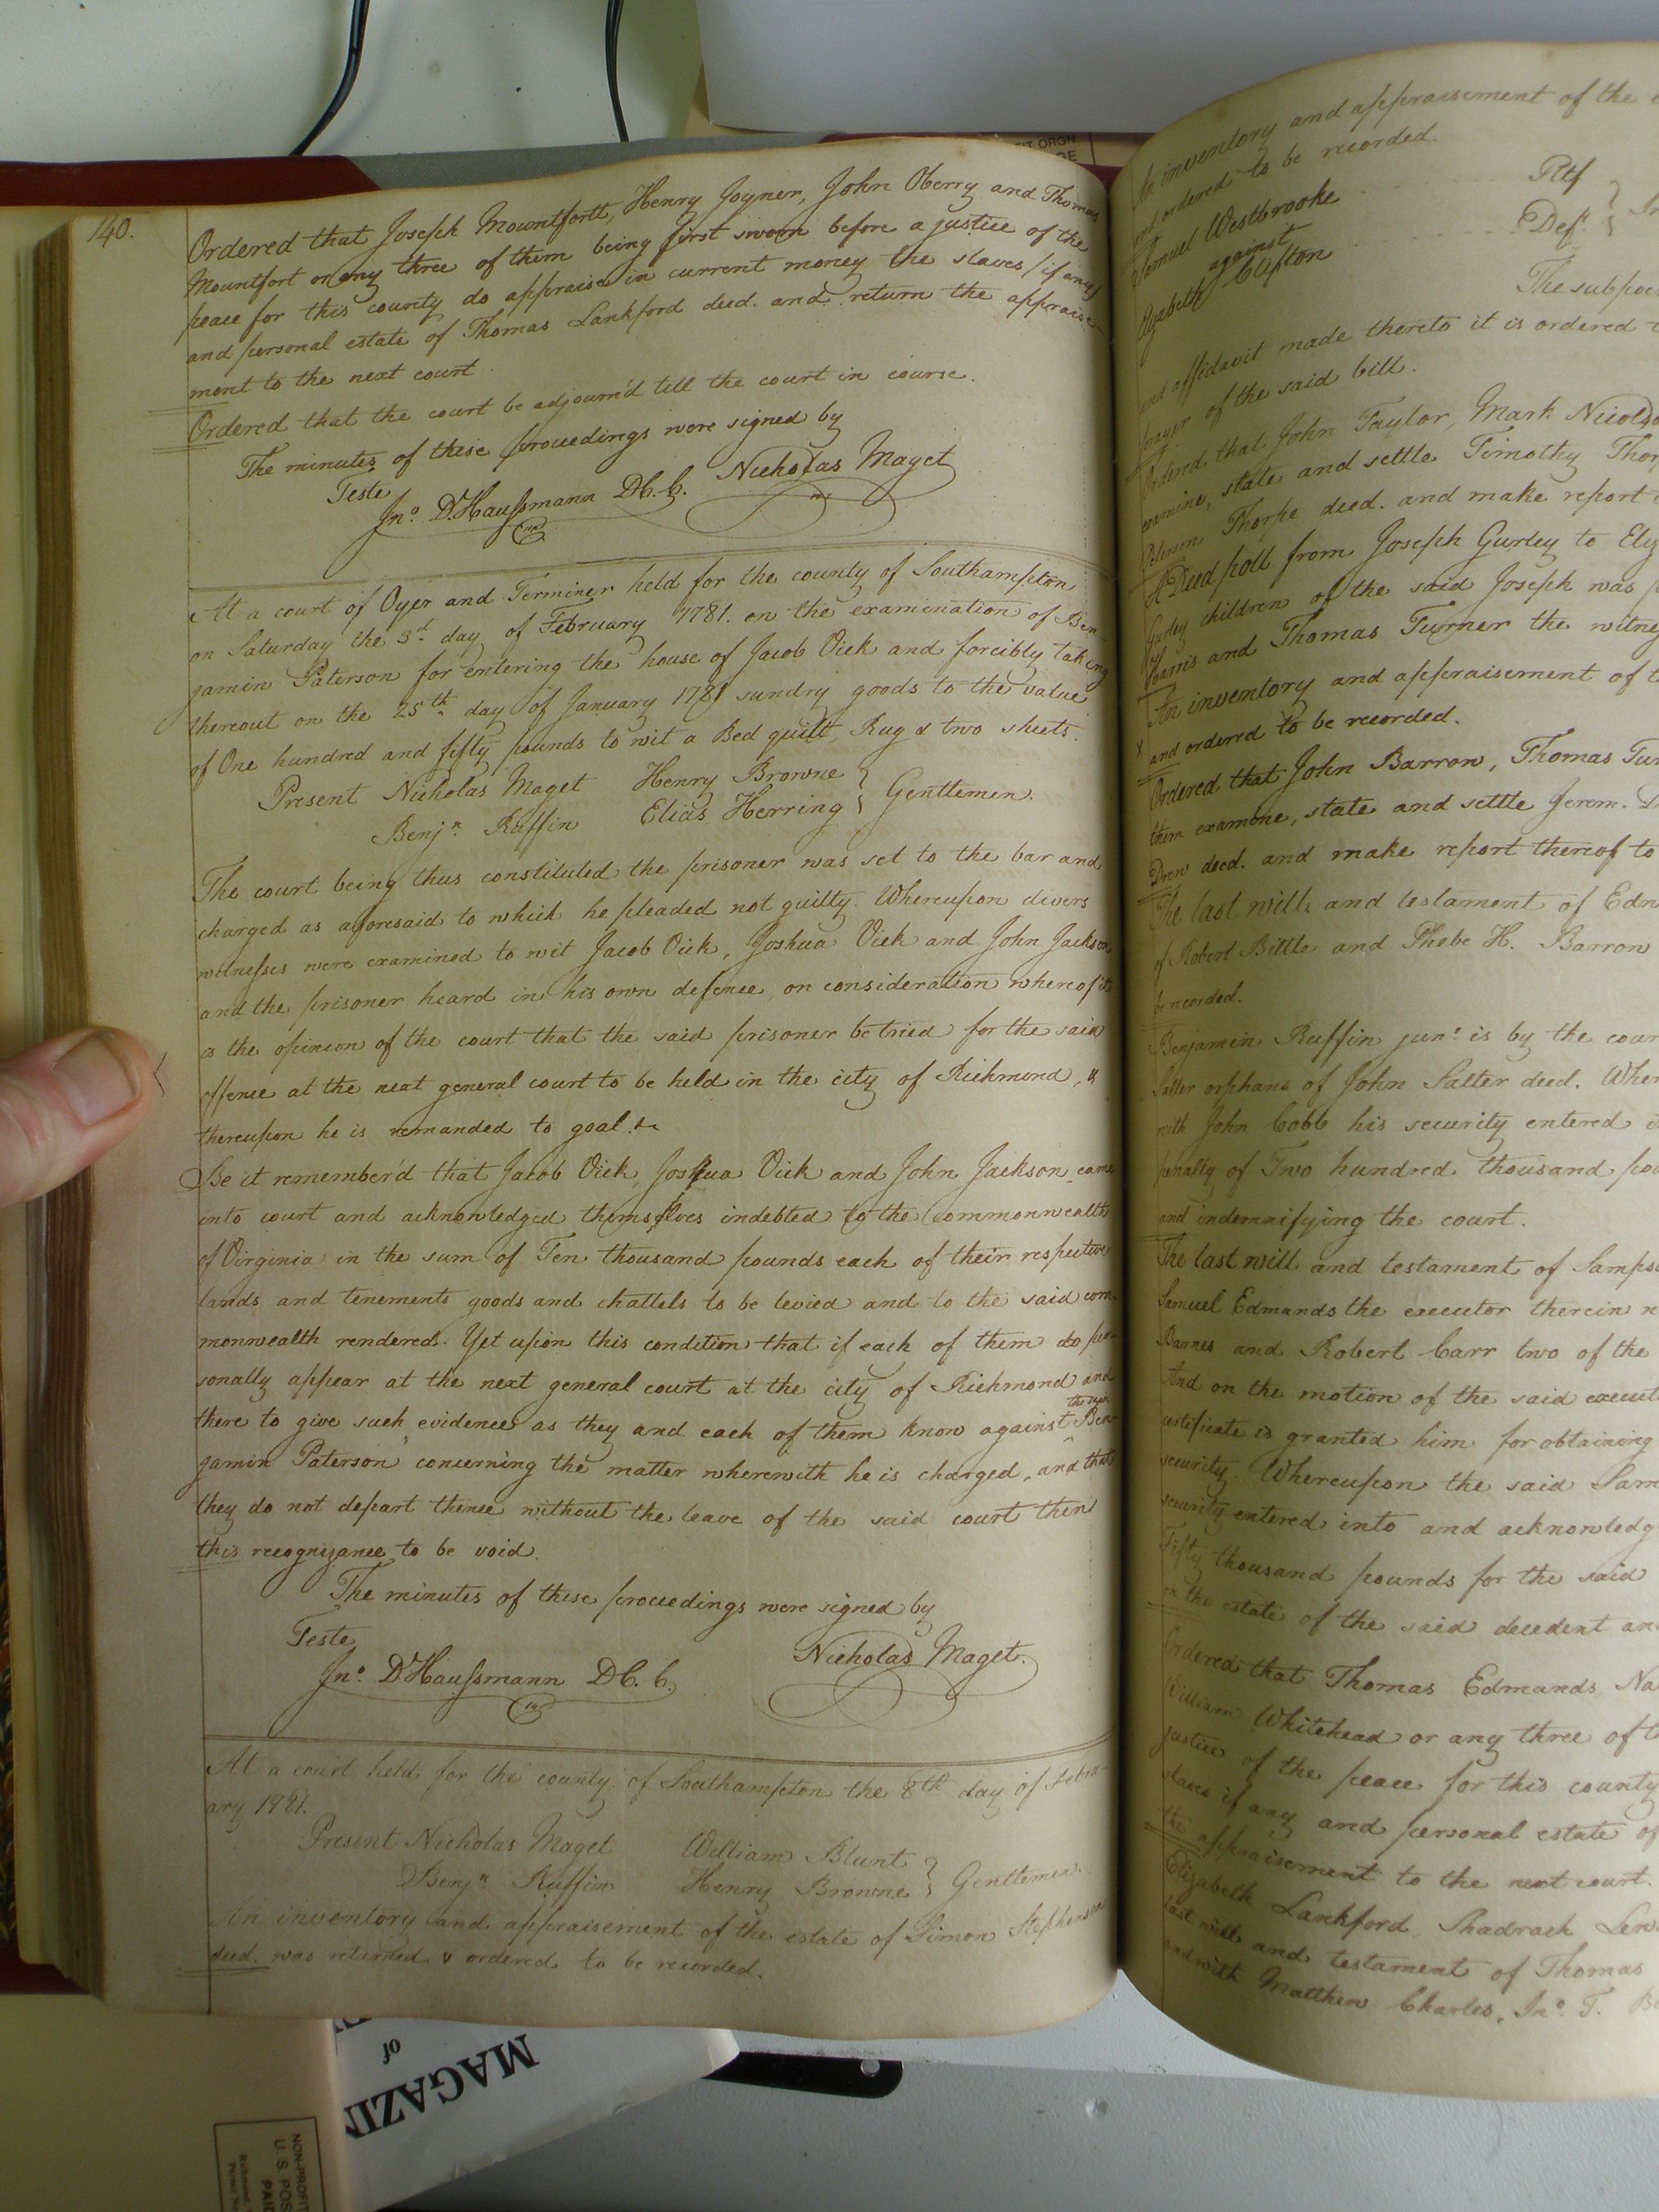 140.
Ordered that Joseph Mountfortt, Henry Joyner, John Oberry and Thomas
Mountfort or any three of them being first sworn before a justice of the
peace for this county do appraise in current money the slaves (if any)
and personal estate of Thomas Lankford deed. and return the appraise-
ment to the next court.
Ordered that the court be adjourn'd till the court in course.
The minutes of these proceedings were signed by
Teste
Nicholas Maget
Jno. D'Haussmann DC.C.
At a court of Oyer and Terminer held for the county of Southampton
on Saturday the 3d. day of February 1781. on the examination of Ben-
jamin Paterson for entering the house of Jacob Vick and forcibly taking
thereout on the 25th. day of January 1781 sundry goods to the value
of One hundred and fifty pounds to wit a Bed quilt, Rug & two sheets.
Present Nicholas Maget Henry Browne } Gentlemen.
Benjn. Ruffin Elias Herring
The court being thus constituted the prisoner was set to the bar and
charged as aforesaid to which he pleaded not guilty. Whereupon divers
witnesses were examined to wit Jacob Vick, Joshua Vick and John Jackson
and the prisoner heard in his own defence, on consideration whereof it
is the opinion of the court that the said prisoner be tried for the said
offence at the next general court to be held in the city of Richmond, &
thereupon he is remanded to goal.
Be it remember'd that Jacob Vick, Joshua Vick and John Jackson came
into court and acknowledged themselves indebted to the commonwealth
of Virginia in the sum of Ten thousand pounds each of their respective
lands and tenements goods and chattels to be levied and to the said com-
monwealth rendered. Yet upon this condition that if each of them do per-
sonally appear at the next general court at the city of Richmond and
there to give such evidence as they and each of them know against Ben-
jamin Paterson concerning the matter wherewith he is charged, and that
they do not depart thence without the leave of the said court then
this recognizance to be void.
The minutes of these proceedings were signed by
Teste
Nicholas Maget.
Jno. D'Haussmann DC.C.
At a court held for the county of Southampton the 8th day of Febru-
ary 1781.
Present Nicholas Maget William Blunt } Gentlemen.
Benjn. Ruffin Henry Browne
An inventory and appraisement of the estate of Simon Stephenson
deed. was returned & ordered to be recorded.
An inventory and appraisement of the
and ordered to be recorded.
Samuel Westbrooke Pltf
against
Elizabeth Clifton Deft.
The subpoe
and affidavit made thereto it is ordered
prayer of the said bill.
Ordered that John Taylor, Mark Nicolso
examine, state and settle Timothy Thor
Thorpe deed. and make report
A Deed poll from Joseph Gurley to Eliz
Gurley children of the said Joseph was
Harris and Thomas Turner the witne
An inventory and appraisement of
X and ordered to be recorded.
Ordered that John Barrow, Thomas Tur
them examine, state and settle Jerem. D
Drew deed. and make report thereof to
The last will and testament of Edw
of Robert Bittle and Phebe H. Barrow
be recorded.
Benjamin Ruffin junr. is by the cour
Salter orphans of John Salter deed. Wher
with John Cobb his security entered
penalty of Two hundred thousand pou
and indemnifying the court.
The last will and testament of Samps
Samuel Edmands the executor therein n
Barnes and Robert Carr two of the
And on the motion of the said execut
certificate is granted him for obtaining
security. Whereupon the said Sam
security entered into and acknowledg
Fifty thousand pounds for the said
on the estate of the said decedent an
Ordered that Thomas Edmunds, Na
William Whitehead or any three of
justice of the peace for this county
slaves if any and personal estate of
the appraisement to the next court.
Elizabeth Lankford, Shadrach Lew
last will and testament of Thomas
and with Matthew Charles, Jno. T. B
MAGAZIN
of
NON-PROFIT
U. S. POS
PAID
Richmond,
Permit No.